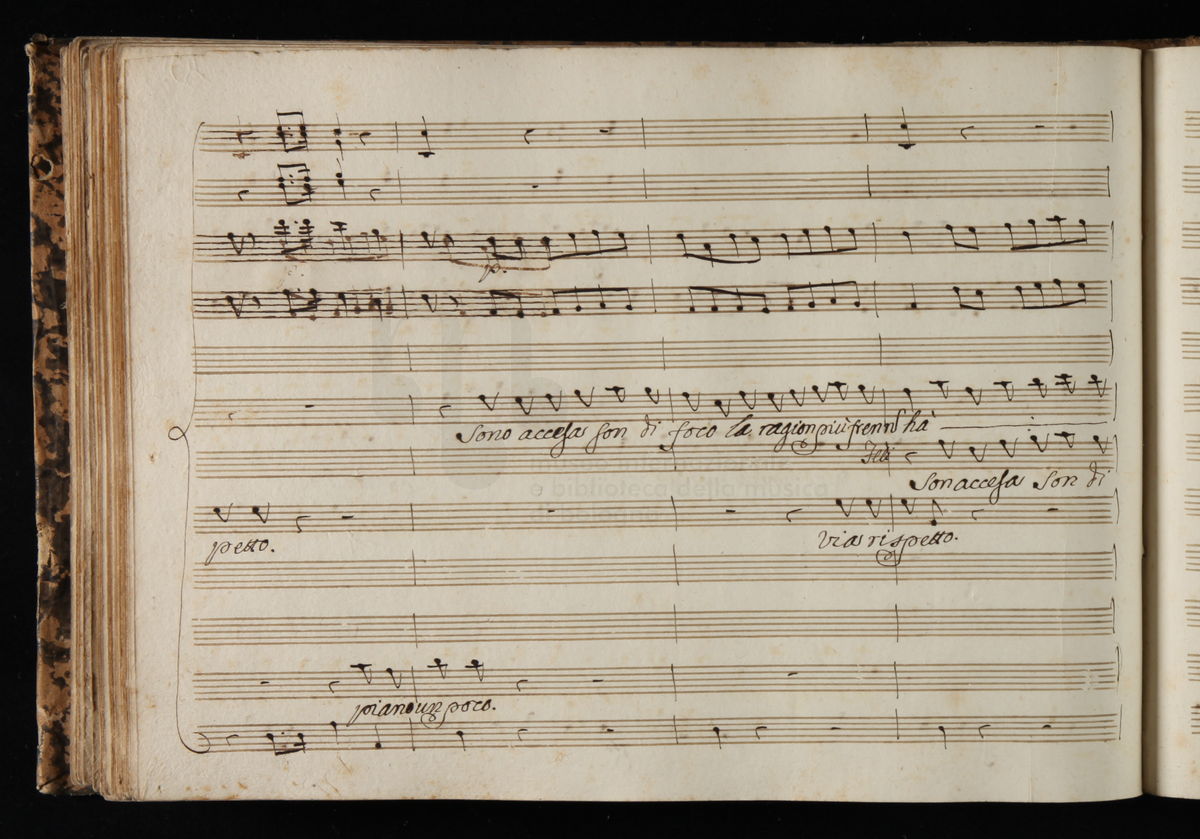 p.
Sono accesa son di foco la ragion più fren non hà
Son accesa son di
petto.
via rispetto.
piano un poco.
museo internazionale
e biblioteca della musica
di bologna